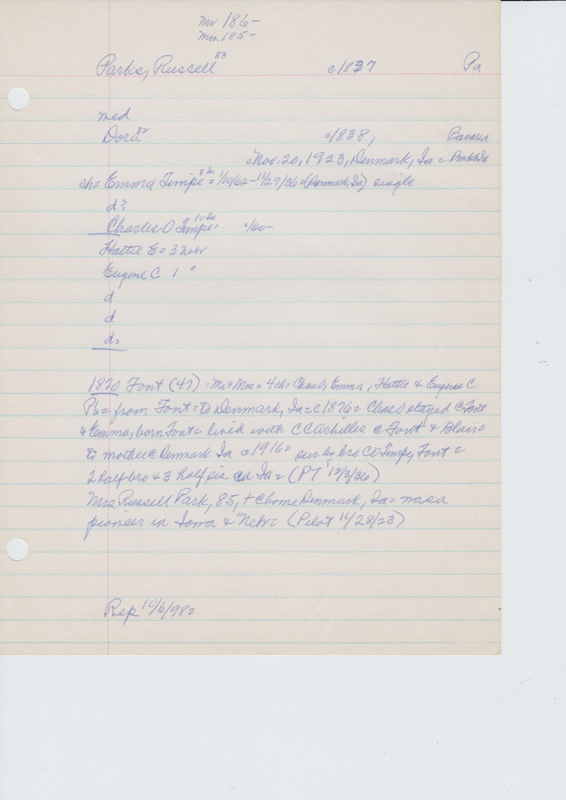 Mr 186-
Mrs. 185-
Parks, Russell 33 c1837 Pa
med
Dora 32 c1838, Bavaria
Nov. 20, 1923, Denmark, Ia =
ch = Emma Timpe 8 Ia = 1/10/62 - 11/29/36 (Denmark, Ia) single
d?
Charles O Timpe 10 Ia c/60-
Hattie E = 3 Nebr
Eugene C 1 "
d
d
d =
1870 Font (47) = Mr & Mrs = 4 ch = Chas O, Emma, Hattie & Eugene C
Ph = from Font = to Denmark, Ia = c1876 = Chas O stayed @ Font
& Emma, born Font = lived with C C Achilles @ Font & Blair =
to mother @ Denmark Ia c1916 = sur by bro C O Timpe, Font =
2 half bro & 3 half sis Ia = (PT 12/3/36)
Mrs Russell Park, 85, + @ home Denmark, Ia = was a
pioneer in Iowa & Nebr = (Pilot 11/28/23)
Rep 10/6/98 =